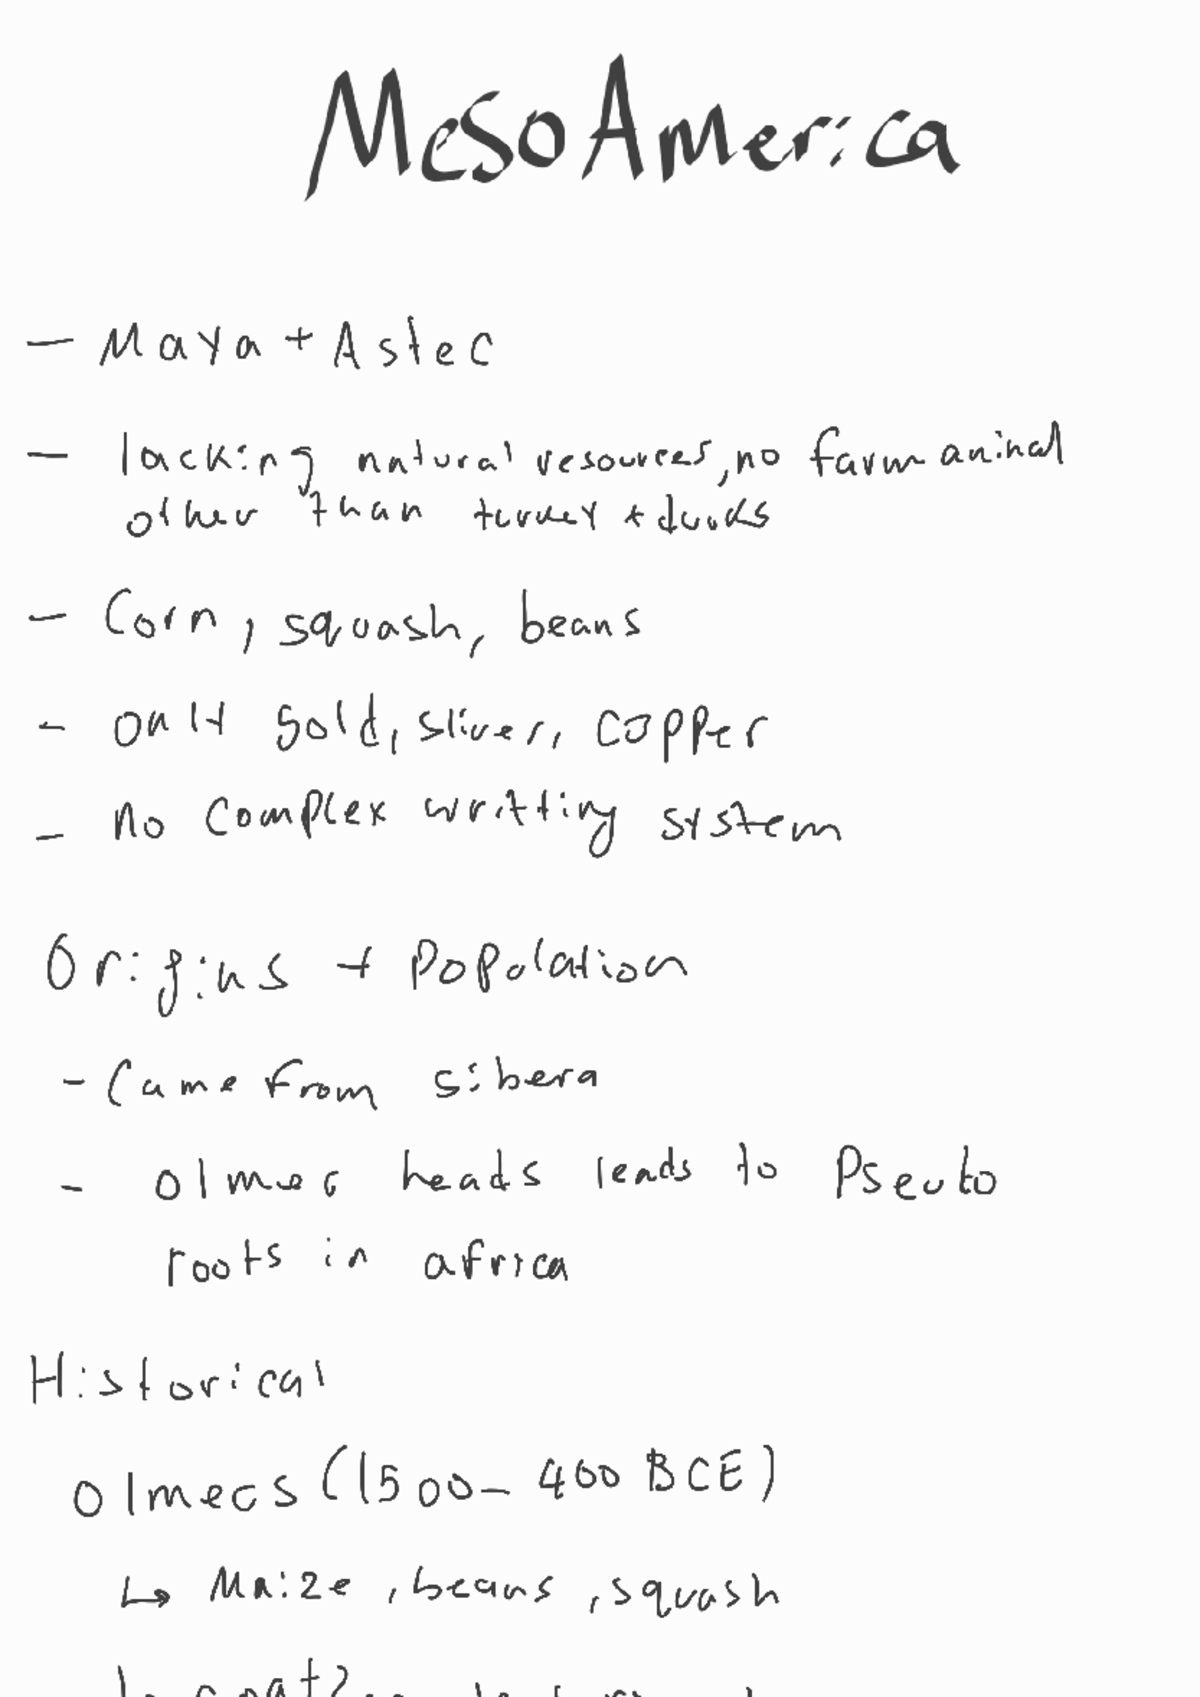 MesoAmerica
- Maya + Astec
- lacking natural resources, no farm aninal
other than turkey + ducks
- Corn, squash, beans
- only Gold, sliver, copper
- no complex writting system
Origins + Popolation
- Came from sibera
- olmec heads leads to Pseuto
roots in africa
Historical
Olmecs (1500- 400 BCE)
↳ Maize, beans, squash